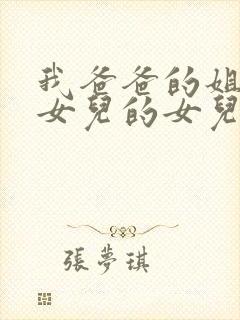 我爸爸的姐
女兒的女兒
張夢琪